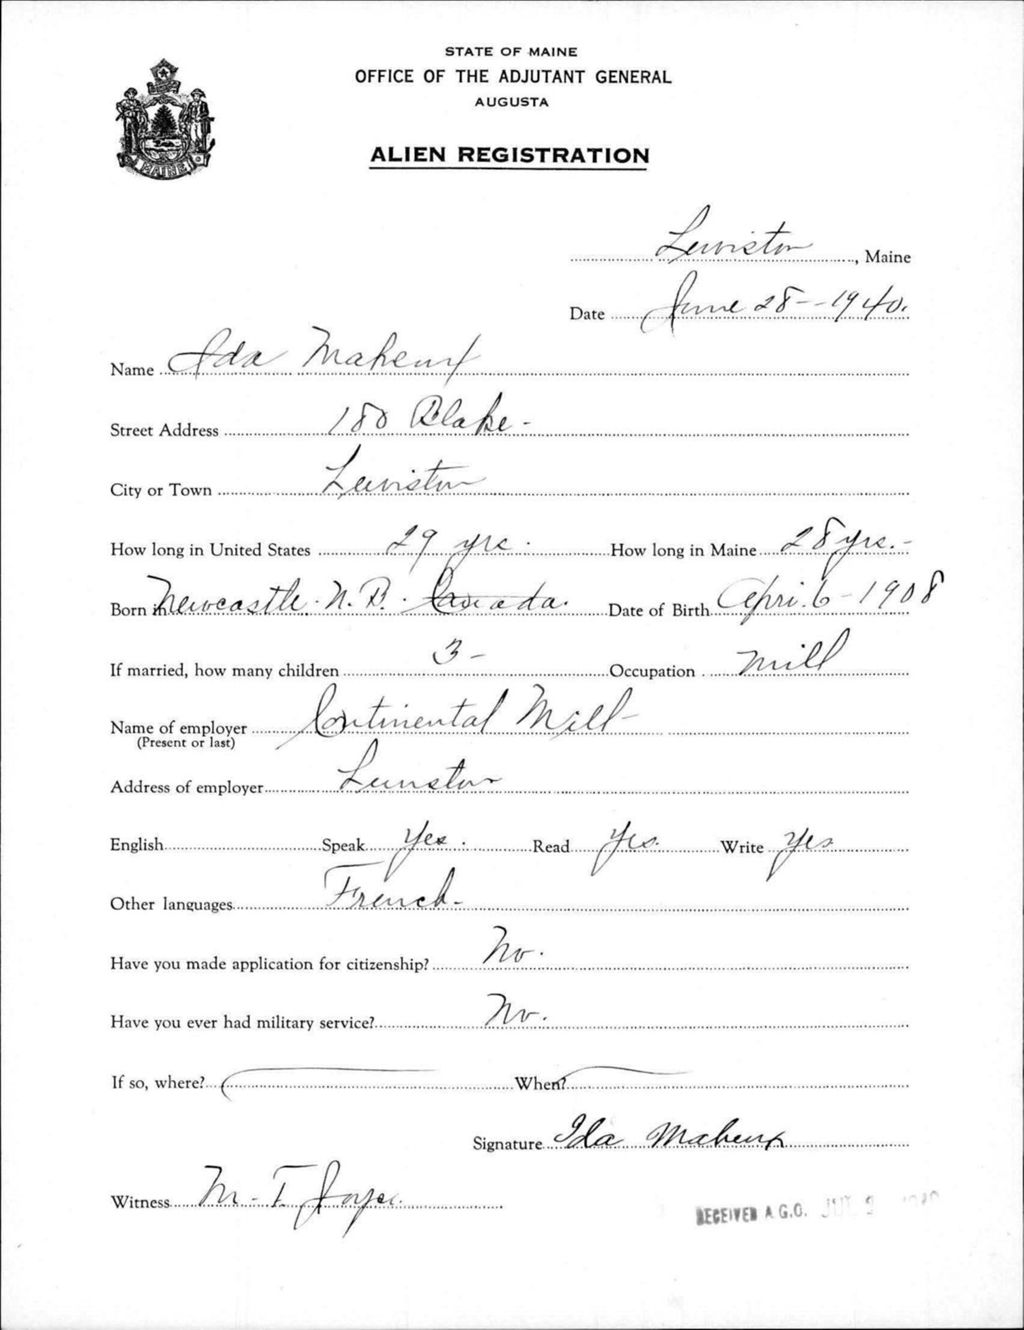 STATE OF MAINE
OFFICE OF THE ADJUTANT GENERAL
AUGUSTA
ALIEN REGISTRATION
MAINE
Lewiston, Maine
Date June 28-1940.
Name Ida Maheux
Street Address 180 Blake-
City or Town Lewiston
How long in United States 29 yrs. How long in Maine 28 yrs.-
Born in Newcastle. N. B. Canada. Date of Birth April 6-1908
If married, how many children 3- Occupation Mill
Name of employer Continental Mill-
(Present or last)
Address of employer Lewiston
English Speak Yes. Read Yes. Write Yes
Other languages French-
Have you made application for citizenship? No.
Have you ever had military service? No.
If so, where? When?
Signature Ida Maheux
Witness M-T. Joyce.
RECEIVED A.G.O. JUL 2 1940